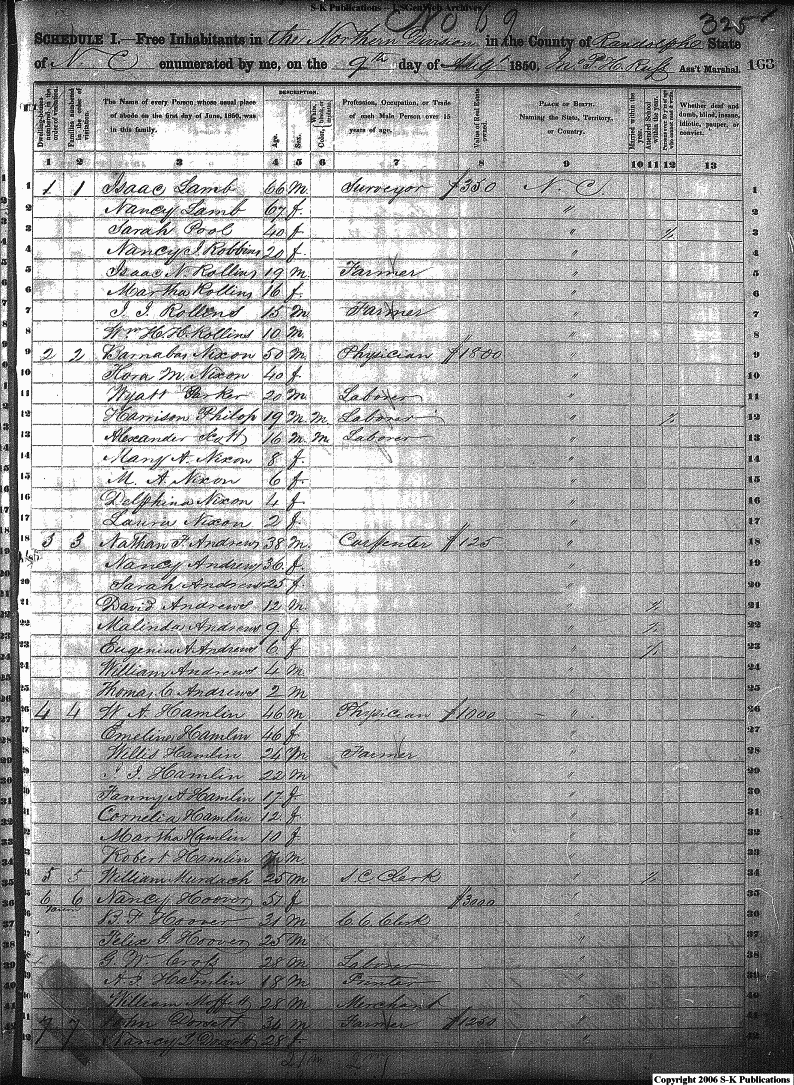 S-K Publications - USGenWeb Archives
No 69
325
SCHEDULE I.—Free Inhabitants in the Northern Division in the County of Randolph State
of N C enumerated by me, on the 9th day of Augt 1850, Ass't Marshal. 163
DESCRIPTION.
Dwelling-houses numbered in the order of visitation.
Families numbered in the order of visitation.
The Name of every Person whose usual place of abode on the first day of June, 1850, was in this family.
Age.
Sex.
Color,
Profession, Occupation, or Trade of each Male Person over 15 years of age.
Value of Real Estate owned.
PLACE OF BIRTH. Naming the State, Territory, or Country.
Married within the year.
Attended School within the year.
Whether deaf and dumb, blind, insane, idiotic, pauper, or convict.
1 2 3 4 5 6 7 8 9 10 11 12 13
1 1 1 Isaac Lamb 66 m Surveyor $350 N. C 1
2 Nancy Lamb 67 f " 2
3 Sarah Pool 40 f " / 3
4 Nancy J. Robbins 20 f " 4
5 Isaac N. Rollins 19 m Farmer " 5
6 Martha Rollins 16 f " 6
7 J. J. Rollins 15 m Farmer " 7
8 Wm H. H. Rollins 10 m " 8
9 2 2 Barnabas Nixon 50 m Physician $1800 " 9
10 M. Nixon 40 f " 10
11 Wyatt Parker 20 m Laborer " 11
12 Harrison Philop 19 m. m. Laborer " / 12
13 Alexander Scott 16 m. m Laborer " 13
14 Mary A. Nixon 8 f " 14
15 M. A. Nixon 6 f " 15
16 Delphina Nixon 4 f " 16
17 Laura Nixon 2 f " 17
18 3 3 Nathan F. Andrews 38 m Carpenter $125 " 18
19 Nancy Andrews 36 f " 19
20 Sarah Andrews 25 f " 20
21 David Andrews 12 m " / 21
22 Malinda Andrews 9 f " / 22
23 Eugenia A. Andrews 6 f " / 23
24 William Andrews 4 m " 24
25 Thomas C Andrews 2 m " 25
26 4 4 W A. Hamlin 46 m Physician $1000 " 26
27 Emeline Hamlin 46 f " 27
28 Willis Hamlin 24 m Farmer " 28
29 J. Hamlin 22 m " 29
30 Fanny A Hamlin 17 f " 30
31 Cornelia Hamlin 12 f " 31
32 Martha Hamlin 10 f " 32
33 Robert Hamlin m " 33
34 5 5 William Murdach 25 m S. C. Clerk " / 34
35 6 6 Nancy Hoover 51 f $3000 " 35
36 B. F. Hoover 31 m C. C. Clerk " 36
37 Felix G. Hoover 25 m " 37
38 G. W. Cross 28 m Laborer " 38
39 A. J. Hamlin 18 m Printer " 39
40 William Moffitt 28 m Merchant " 40
41 7 7 John Dovett 34 m Farmer $1250 " 41
42 Nancy L Dovett 28 f " 42
Copyright 2006 S-K Publications